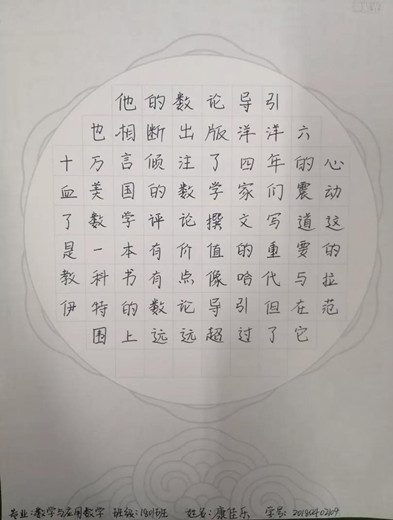 他的数论导引
也相断出版洋洋六
十万言倾注了四年的心
血美国的数学家们震动
了数学评论撰文写道这
是一本有价值的重要的
教科书有点像哈代与拉
伊特的数论导引但在范
围上远远超过了它
专业:数学与应用数学 班级: 姓名:康佳乐 学号: